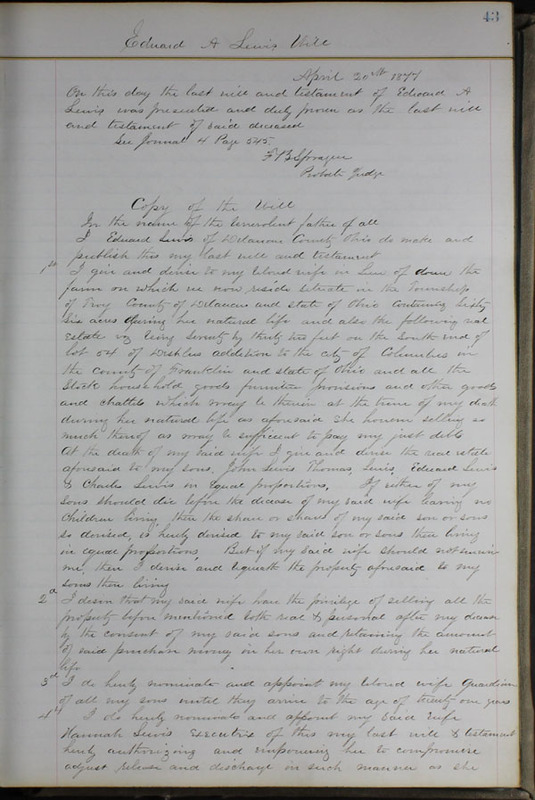 43
Edward A Lewis Will
April 20th 1877
On this day the last will and testament of Edward A
Lewis was presented and duly proven as the last will
and testament of said deceased
See Journal 4 Page 545.
F B Sprague
Probate Judge
Copy of the Will
In the name of the benevolent father of all
I Edward Lewis of Delaware County Ohio do make and
publish this my last will and testament
1st I give and devise to my beloved wife in Lieu of dower the
farm on which we now reside situate in the Township
of Troy County of Delaware and state of Ohio Containing Sixty
six acres during her natural life and also the following real
Estate viz being seventy by thirty two feet on the South end of
lot 54 of addition to the city of Columbus in
the County of Franklin and state of Ohio and all the
Stock household goods furniture provisions and other goods
and chattels which may be therein at the time of my death
during her natural life as aforesaid she however selling so
much thereof as may be sufficient to pay my just debts
At the death of my said wife I give and devise the real estate
aforesaid to my sons. John Lewis Thomas Lewis, Edward Lewis
& Charles Lewis in equal proportions, If either of my
sons should die before the decease of my said wife leaving no
children living then the share or shares of my said son or sons
so devised, is hereby devised to my said son or sons then living
in equal proportions, But if my said wife should not survive
me, then I devise and bequeath the property aforesaid to my
sons then living
2d I desire that my said wife have the privilege of selling all the
property before mentioned both real & personal after my decease
by the consent of my said sons and retaining the amount
of said purchase money in her own right during her natural
life
3d I do hereby nominate and appoint my beloved wife Guardian
of all my sons until they arrive to the age of twenty one years
4th I do hereby nominate and appoint my said wife
Hannah Lewis Executrix of this my last will & testament
hereby authorizing and empowering her to compromise
adjust release and discharge in such manner as she